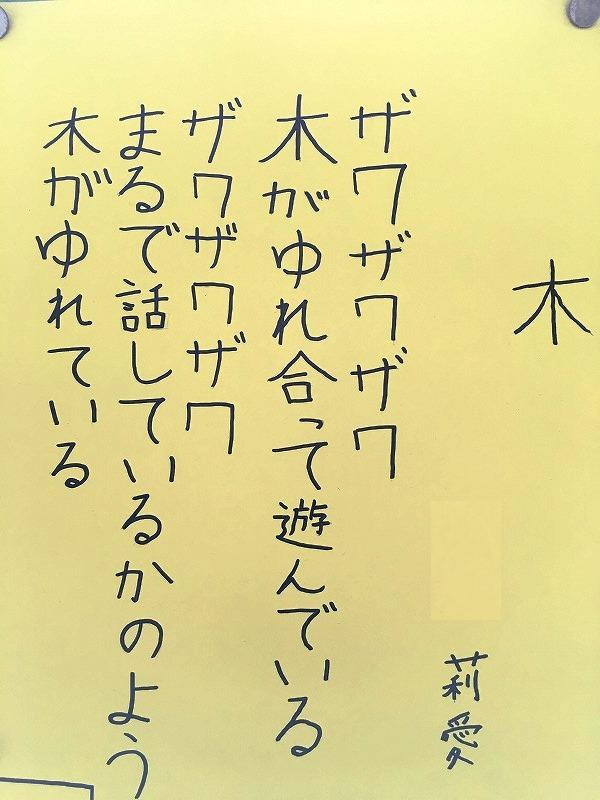 木
莉愛
ザワザワザワ
木がゆれ合って遊んでいる
ザワザワザワ
まるで話しているかのよう
木がゆれている